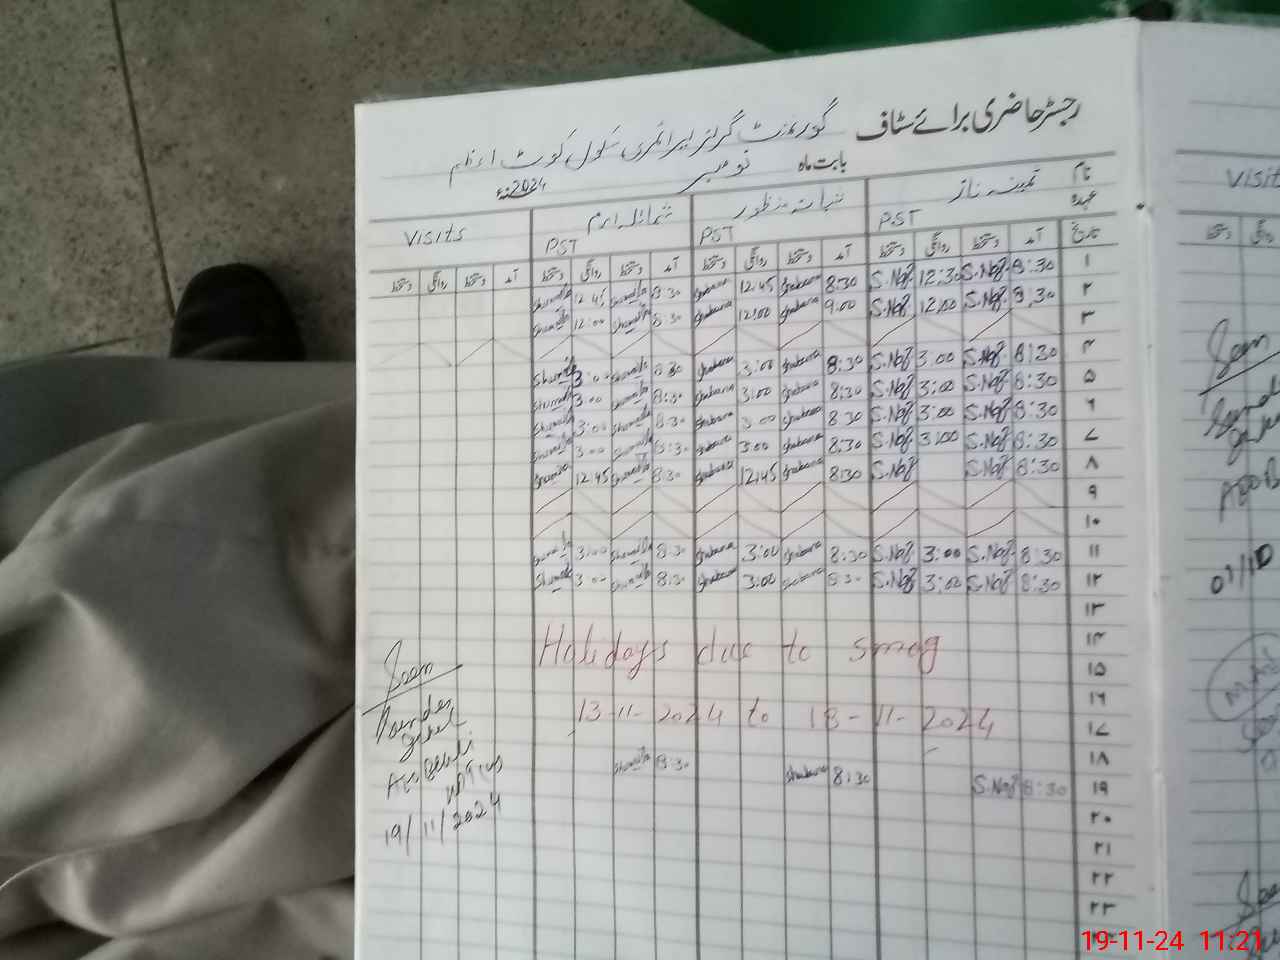 رجسٹر حاضری برائے سٹاف گورنمنٹ گرلز پرائمری سکول کوٹ اعظم
بابت ماہ نومبر 2024ء
نام ثمینہ ناز شبانہ منظور شمائلہ ارم Visits
عہدہ PST PST PST
تاریخ آمد دستخط روانگی دستخط آمد دستخط روانگی دستخط آمد دستخط روانگی دستخط آمد دستخط روانگی دستخط
۱ 8:30 S.Naz 12:30 S.Naz 8:30 Shabana 12:45 Shabana 8:30 Shumaila 12:45 Shumaila
۲ 8:30 S.Naz 12:00 S.Naz 9:00 Shabana 12:00 Shabana 8:30 Shumaila 12:00 Shumaila
۳
۴ 8:30 S.Naz 3:00 S.Naz 8:30 Shabana 3:00 Shabana 8:30 Shumaila 3:00 Shumaila
۵ 8:30 S.Naz 3:00 S.Naz 8:30 Shabana 3:00 Shabana 8:30 Shumaila 3:00 Shumaila
۶ 8:30 S.Naz 3:00 S.Naz 8:30 Shabana 3:00 Shabana 8:30 Shumaila 3:00 Shumaila
۷ 8:30 S.Naz 3:00 S.Naz 8:30 Shabana 3:00 Shabana 8:30 Shumaila 3:00 Shumaila
۸ 8:30 S.Naz S.Naz 8:30 Shabana 12:45 Shabana 8:30 Shumaila 12:45 Shumaila
۹
۱۰
۱۱ 8:30 S.Naz 3:00 S.Naz 8:30 Shabana 3:00 Shabana 8:30 Shumaila 3:00 Shumaila
۱۲ 8:30 S.Naz 3:00 S.Naz 8:30 Shabana 3:00 Shabana 8:30 Shumaila 3:00 Shumaila
۱۳
۱۴
Holidays due to smog
۱۵
۱۶
13-11-2024 to 18-11-2024
۱۷
۱۸
۱۹ 8:30 S.Naz 8:30 Shabana 8:30 Shumaila
۲۰
۲۱
۲۲
۲۳
Seen
19/11/2024
Visits
دستخط روانگی
Seen
01/10
Seen
19-11-24 11:21